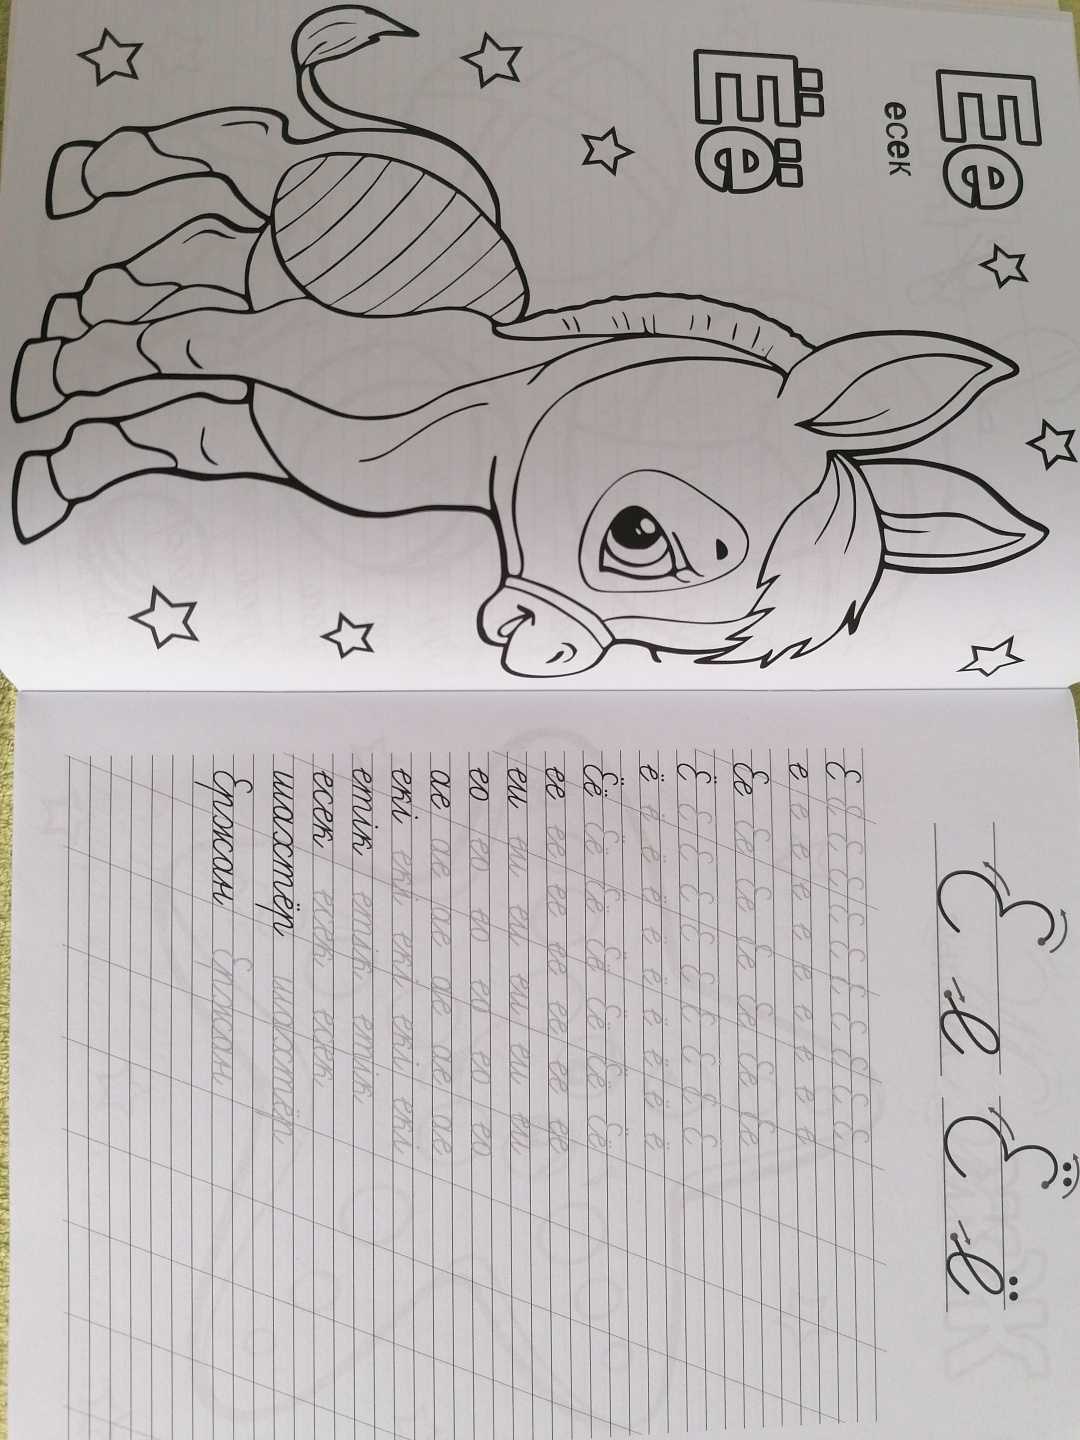 Ее
есек
Ёё
Е е Ё ё
Е Е Е Е Е Е Е Е Е Е Е
е е е е е е е е е е е
Ее Ее Ее Ее Ее Ее Ее
Ё Ё Ё Ё Ё Ё Ё Ё Ё Ё
ё ё ё ё ё ё ё ё ё ё
Ёё Ёё Ёё Ёё Ёё Ёё Ёё
ее ее ее ее ее ее ее
еи еи еи еи еи еи
ео ео ео ео ео ео
ае ае ае ае ае ае
екі екі екі екі екі
етік етік етік
есек есек есек
шахтёр шахтёр
Ержан Ержан